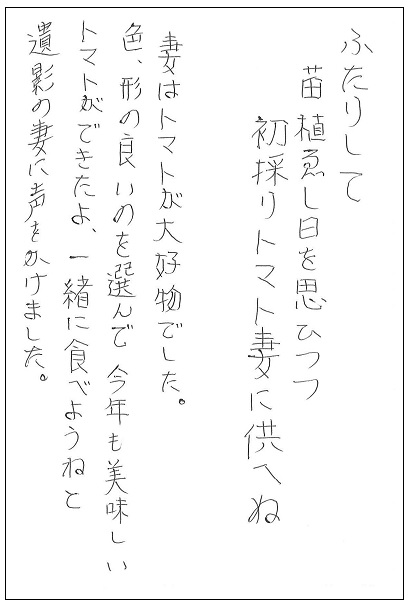 ふたりして
苗植ゑし日を思ひつつ
初採りトマト妻に供へぬ
妻はトマトが大好物でした。
色、形の良いのを選んで今年も美味しい
トマトができたよ、一緒に食べようねと
遺影の妻に声をかけました。